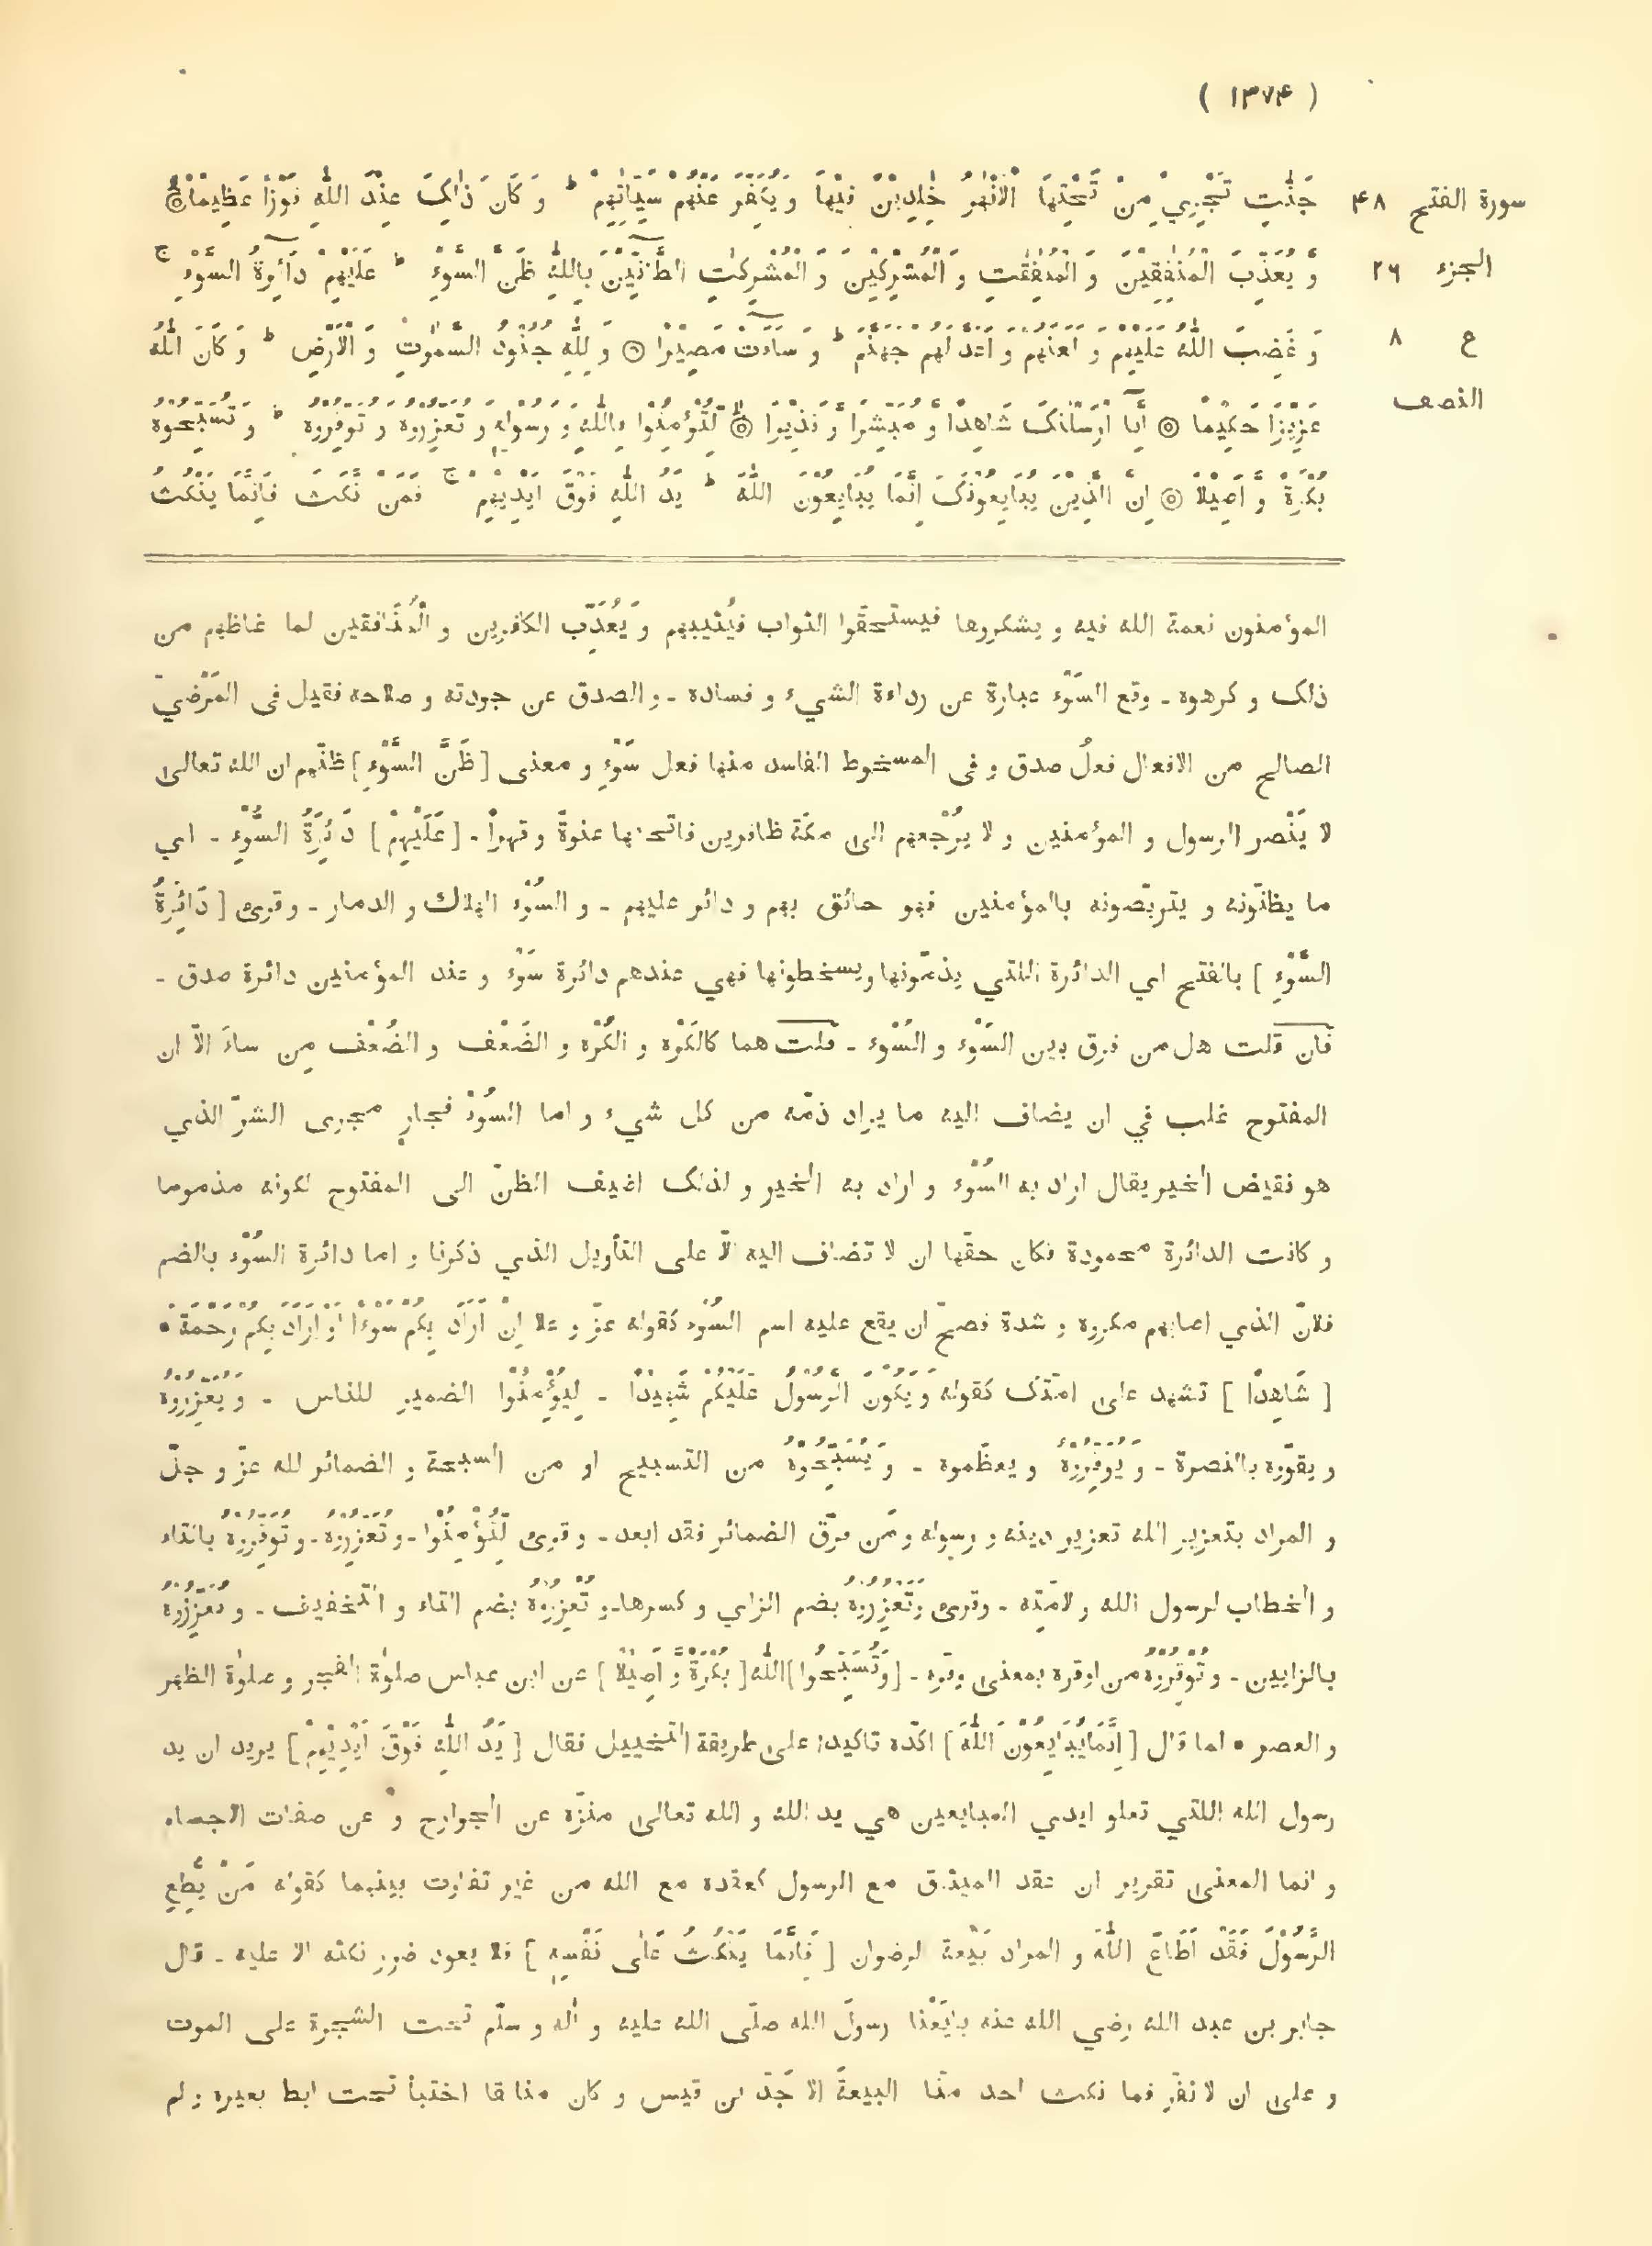 ( ١٣٧۴ )
سورة الفتح ۴٨
الجزء ٢٦
ع ٨
النصف
جَنّٰتٍ تَجْرِيْ مِنْ تَحْتِهَا الْاَنْهٰرُ خٰلِدِيْنَ فِيْهَا وَ يُكَفِّرَ عَنْهُمْ سَيِّاٰتِهِمْ ط وَ كَانَ ذٰلِكَ عِنْدَ اللّٰهِ فَوْزًا عَظِيْمًا ۞
وَّ يُعَذِّبَ الْمُنٰفِقِيْنَ وَ الْمُنٰفِقٰتِ وَ الْمُشْرِكِيْنَ وَ الْمُشْرِكٰتِ الظَّآنِّيْنَ بِاللّٰهِ ظَنَّ السَّوْءِ ط عَلَيْهِمْ دَآئِرَةُ السَّوْءِ ج
وَ غَضِبَ اللّٰهُ عَلَيْهِمْ وَ لَعَنَهُمْ وَ اَعَدَّ لَهُمْ جَهَنَّمَ ط وَ سَآءَتْ مَصِيْرًا ۞ وَ لِلّٰهِ جُنُوْدُ السَّمٰوٰتِ وَ الْاَرْضِ ط وَ كَانَ اللّٰهُ
عَزِيْزًا حَكِيْمًا ۞ اِنَّآ اَرْسَلْنٰكَ شَاهِدًا وَّ مُبَشِّرًا وَّ نَذِيْرًا ۞ لِّتُؤْمِنُوْا بِاللّٰهِ وَ رَسُوْلِهٖ وَ تُعَزِّرُوْهُ وَ تُوَقِّرُوْهُ ط وَ تُسَبِّحُوْهُ
بُكْرَةً وَّ اَصِيْلًا ۞ اِنَّ الَّذِيْنَ يُبَايِعُوْنَكَ اِنَّمَا يُبَايِعُوْنَ اللّٰهَ ط يَدُ اللّٰهِ فَوْقَ اَيْدِيْهِمْ ج فَمَنْ نَّكَثَ فَاِنَّمَا يَنْكُثُ
المؤمنون نعمة الله فيه و يشكروها فيستحقّوا الثواب فيُثيبهم و يُعذّب الكافرين و الْمُنافقين لما غاظهم من
ذلك و كرهوه ـ وقع السَّوْء عبارة عن رداءة الشيء و فساده ـ و الصدق عن جودته و صلاحه فقيل فى المَرْضيّ
الصالح من الافعال فعلُ صدق و فى المسخوط الفاسد منها فعل سَوْءٍ و معنى [ ظَنَّ السَّوْءِ ] ظنّهم ان الله تعالى
لا يَنْصر الرسول و المؤمنين و لا يُرْجعهم الى مكّة ظافرين فاتحيها عنوةً و قهراً ـ [ عَلَيْهِمْ ] دَائِرَةُ السُّوْءِ ـ اي
ما يظنّونه و يتربّصونه بالمؤمنين فهو حائق بهم و دائر عليهم ـ و السُّوْء الهلاك و الدمار ـ و قرئ [ دَائِرَةُ
السَّوْءِ ] بالفتح اي الدائرة اللتي يذمّونها و يسخطونها فهي عندهم دائرة سَوْء و عند المؤمنين دائرة صدق ـ
فان قلت هل من فرق بين السَّوْء و السُّوْء ـ قلت هما كالكَرْه و الكُرْه و الضَعْف و الضُعْف مِن ساءَ الّا ان
المفتوح غلب في ان يضاف اليه ما يراد ذمّه من كل شيء و اما السُوْءُ فجارٍ مجرى الشرّ الذي
هو نقيض الخير يقال اراد به السُّوْء و اراد به الخير و لذلك اضيف الظنّ الى المفتوح لكونه مذموما
و كانت الدائرة محمودة فكان حقّها ان لا تضاف اليه الّا على التأويل الذي ذكرنا و اما دائرة السُّوْء بالضم
فلانّ الذي اصابهم مكروه و شدة فصحّ ان يقع عليه اسم السُّوْء كقوله عزّ و علا اِنْ اَرَادَ بِكُمْ سُوْءًا اَوْ اَرَادَ بِكُمْ رَحْمَةً •
[ شَاهِدًا ] تشهد على امّتك كقوله وَ يَكُوْنَ الرَّسُوْلُ عَلَيْكُمْ شَهِيْدًا ـ لِيُؤْمِنُوْا الضمير للناس ـ وَ يُعَزِّرُوْهُ
و يقوّوه بالنصرة ـ وَ يُوَقِّرُوْهُ و يعظّموه ـ وَ يُسَبِّحُوْهُ من التسبيح او من السبحة و الضمائر لله عزّ و جلّ
و المراد بتعزير الله تعزير دينه و رسوله و مَن فرّق الضمائر فقد ابعد ـ و قرئ لِّتُؤْمِنُوْا ـ و تُعَزِّرُوْهُ ـ و تُوَقِّرُوْهُ بالتاء
و الخطاب لرسول الله و لامّته ـ و قرئ وَ تَعْزُرُوْهُ بضم الزاي و كسرها ـ و تُعْزِرُوْهُ بضم التاء و التخفيف ـ و تُعَزِّزُوْهُ
بالزايين ـ و تُوْقِرُوْهُ من اوقره بمعنى وقّره ـ [ وَ تُسَبِّحُوا ] اللّٰه [ بُكْرَةً وَّ اَصِيْلًا ] عن ابن عباس صلوٰة الفجر و صلوٰة الظهر
و العصر • لما قال [ اِنَّمَا يُبَايِعُوْنَ اللّٰهَ ] اكّده تاكيدا على طريقة التخييل فقال [ يَدُ اللّٰهِ فَوْقَ اَيْدِيْهِمْ ] يريد ان يد
رسول الله اللتي تعلو ايدي المبايعين هي يد الله و الله تعالى منزّه عن الجوارح و عن صفات الاجسام
و انما المعنى تقرير ان عقد الميثاق مع الرسول كعقده مع الله من غير تفاوت بينهما كقوله مَنْ يُّطِعِ
الرَّسُوْلَ فَقَدْ اَطَاعَ اللّٰهَ و المراد بَيْعة الرضوان [ فَاِنَّمَا يَنْكُثُ عَلٰى نَفْسِهٖ ] فلا يعود ضرر نكثه الا عليه ـ قال
جابر بن عبد الله رضي الله عنه بايَعْنا رسولَ الله صلّى الله عليه و اٰله و سلّم تحت الشجرة على الموت
و على ان لا نفرّ فما نكث احد منّا البيعةَ الا جَدّ بن قيس و كان منافقا اختبأ تحت ابط بعيره و لم